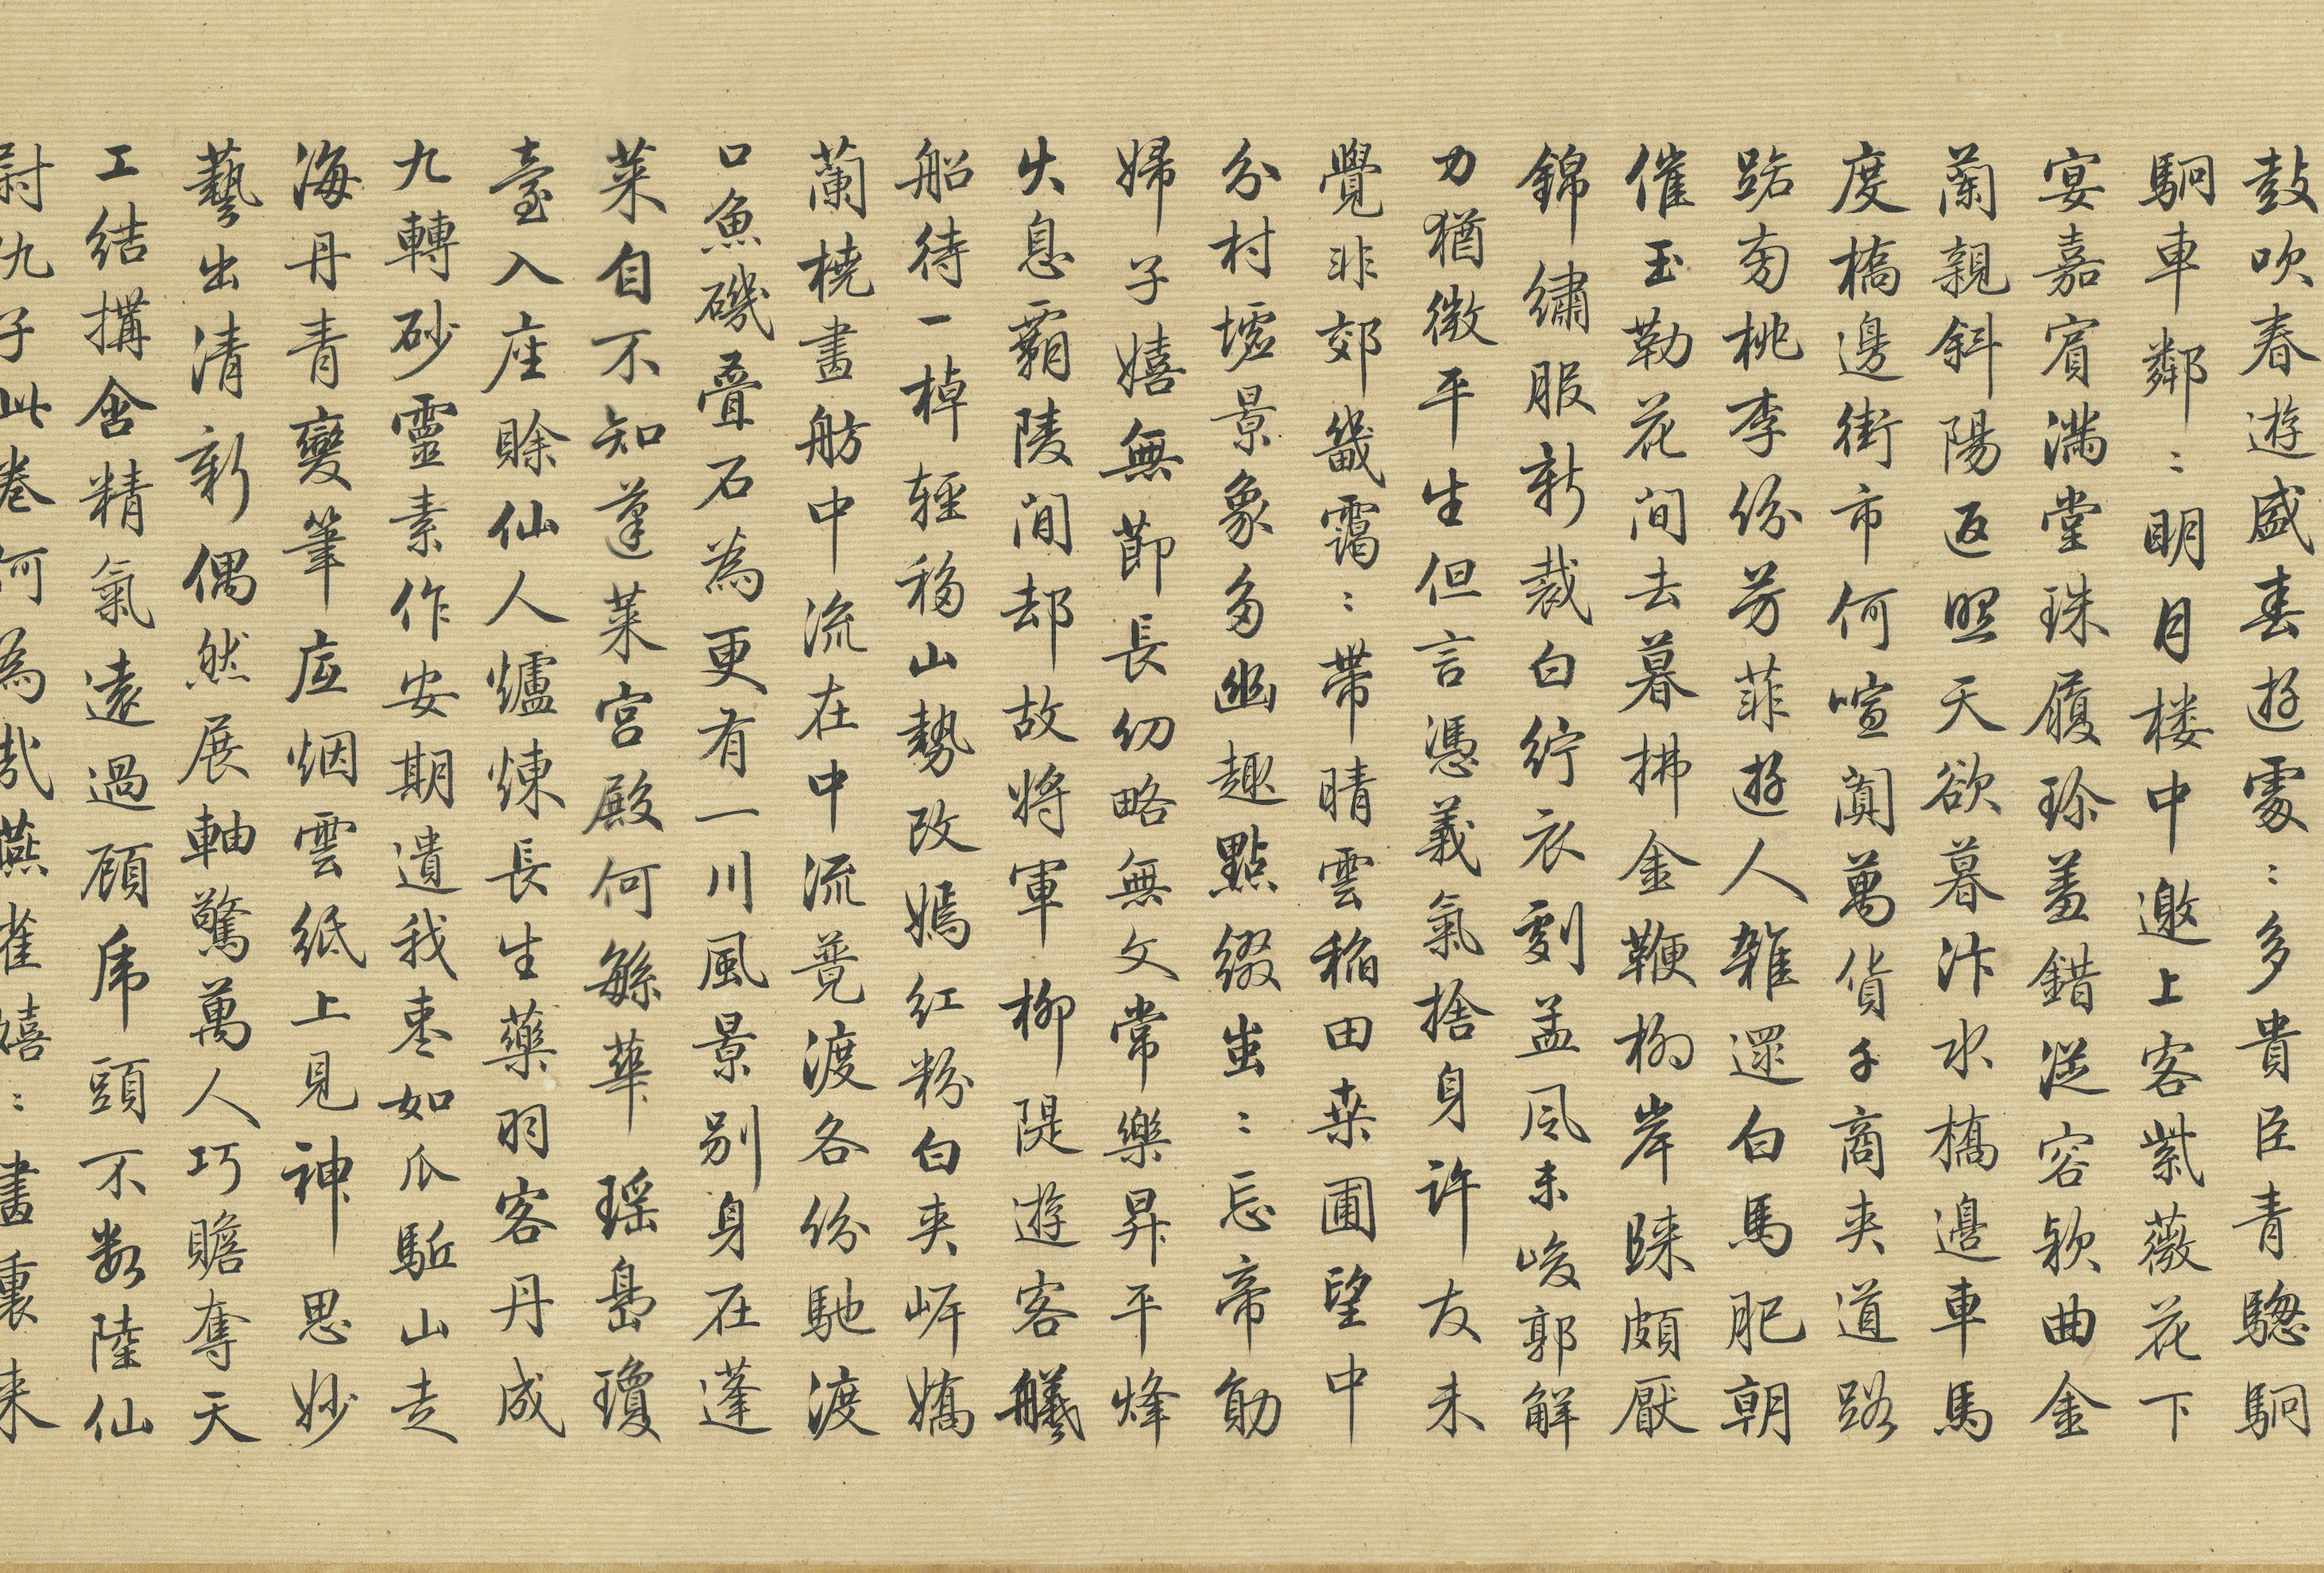 鼓吹春遊盛春遊處〻多貴臣青驄駉
駉車鄰〻明月楼中邀上客紫薇花下
宴嘉賓満堂珠履珎羞錯従容欵曲金
蘭親斜陽返照天欲暮汴水橋邊車馬
度橋邊街市何喧闐萬貨千商夾道路
路旁桃李份芳菲遊人雜還白馬肥朝
催玉勒花间去暮拂金鞭柳岸睐頗厭
錦繡服新裁白紵衣劇孟风未峻郭解
力猶微平生但言憑義氣捨身許友未
覺非郊畿靄〻帶晴雲稲田桒圃望中
分村墟景象多幽趣點綴蚩〻忘帝勛
婦子嬉無莭長幼略無文常樂昇平烽
火息霸陵间却故将軍柳隄遊客艤
船待一棹軽移山勢改嫣红粉白夾岸嬌
蘭橈畫舫中流在中流竟渡各份馳渡
口魚磯疊石為更有一川風景别身在蓬
莱自不知蓬莱宫殿何繁華瑶島瓊
臺入座賒仙人爐煉長生藥羽客丹成
九轉砂靈素作安期遺我枣如瓜駈山走
海丹青變筆底烟雲紙上見神思妙
藝出清新偶然展軸驚萬人巧瞻奪天
工結搆含精氣遠過顧虎頭不數陸仙
尉仇子此卷何為哉燕雀嬉〻畫裏来